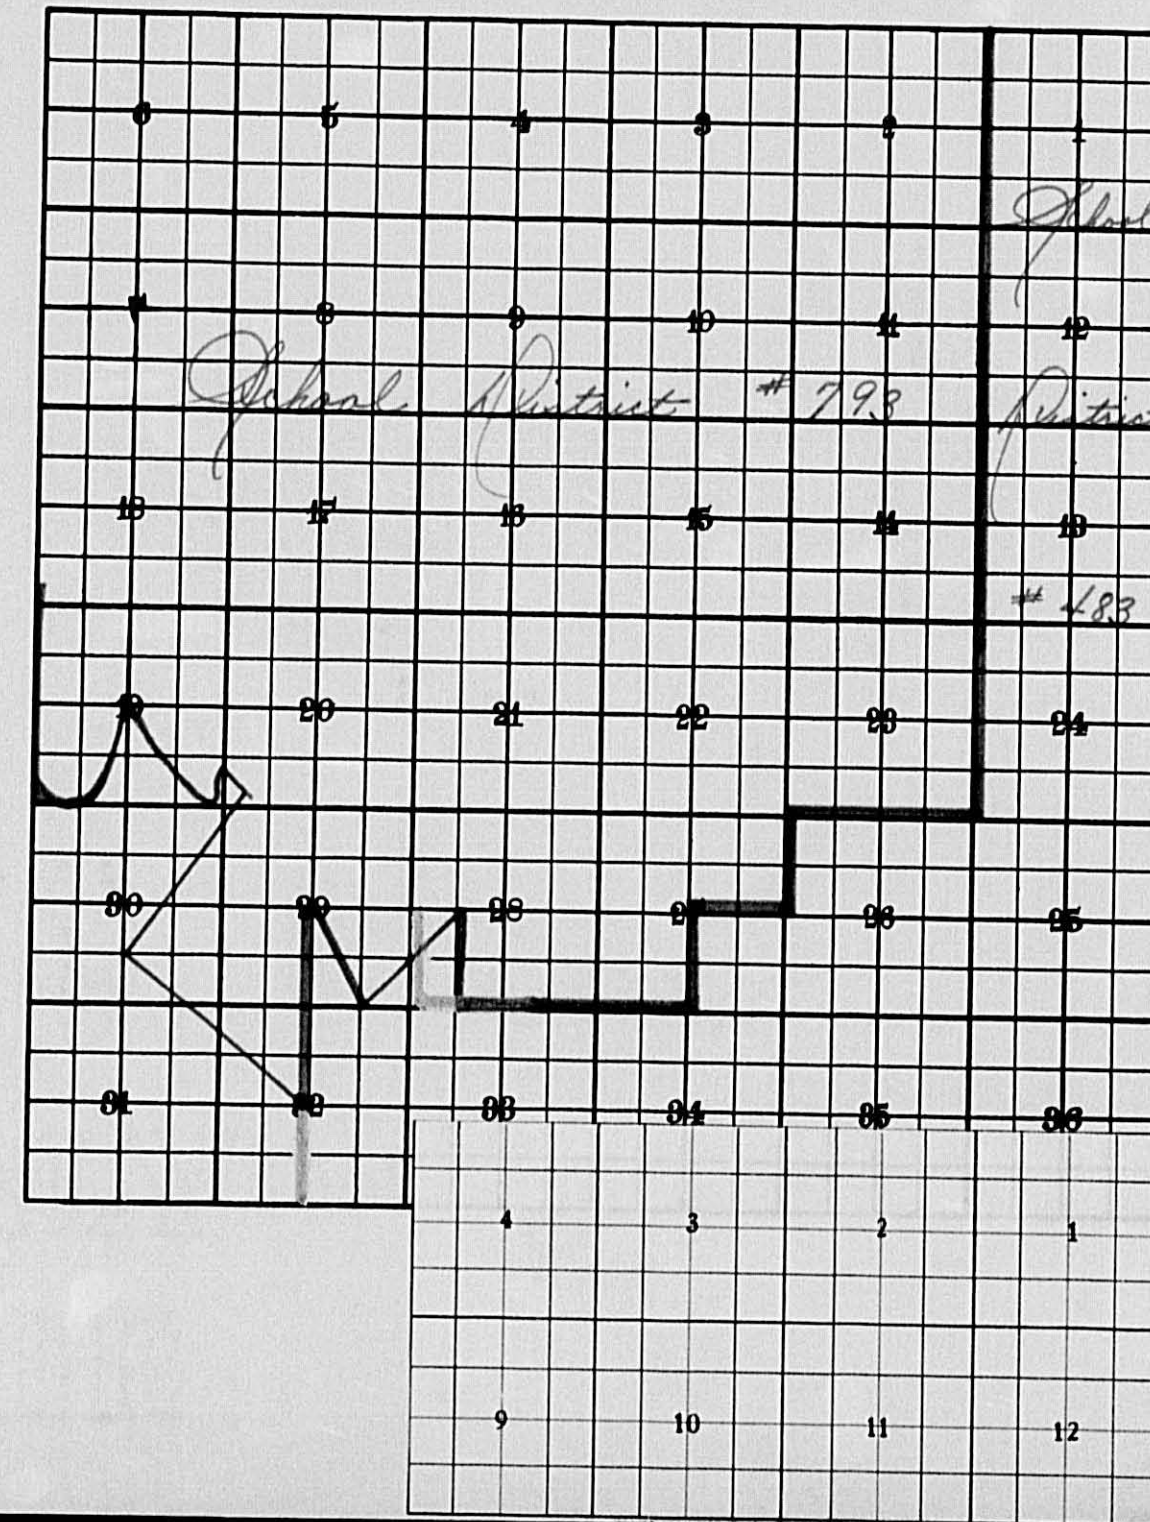 6 5 4 3 2 1
School
7 8 9 10 11 12
School District # 793
District
18 17 16 15 14 13
# 483
19 20 21 22 23 24
30 29 28 27 26 25
31 32 33 34 35 36
4 3 2 1
9 10 11 12